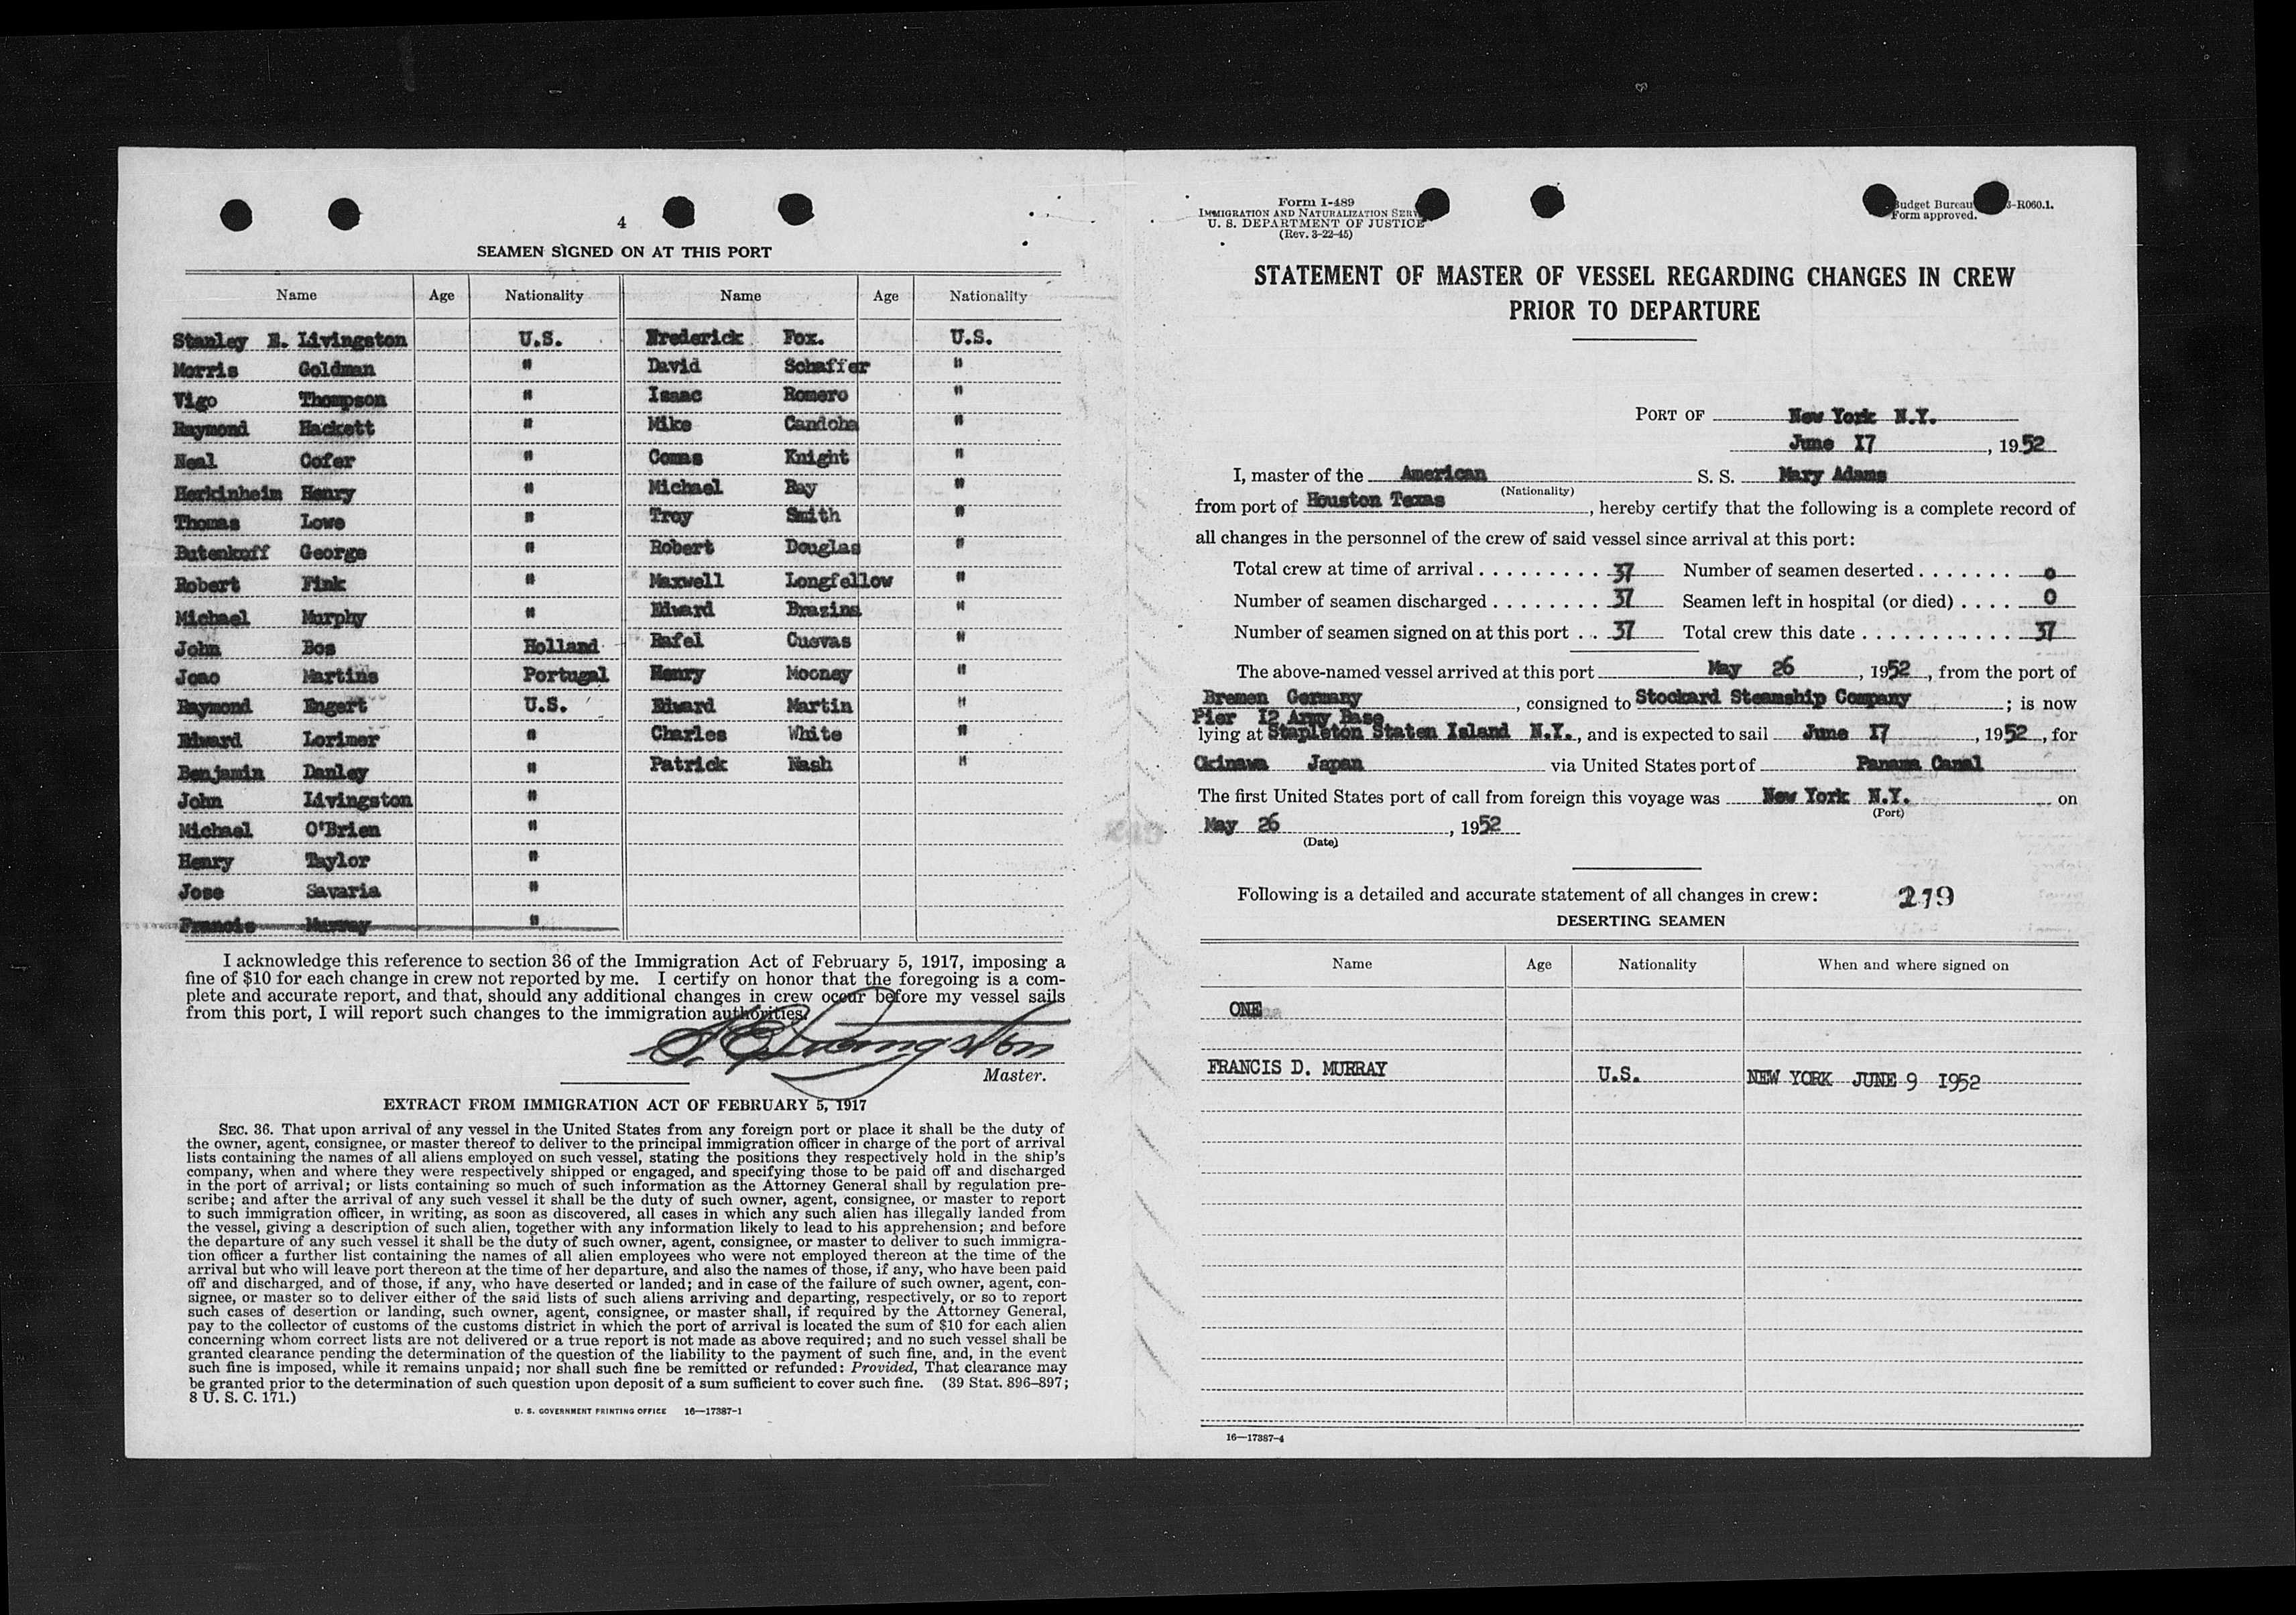 4
SEAMEN SIGNED ON AT THIS PORT
Name Age Nationality Name Age Nationality
Stanley E. Livingston U.S. Frederick Fox. U.S.
Morris Goldman " David Schaffer "
Vigo Thompson " Isaac Romero "
Raymond Hackett " Mike Candoha "
Neal Cofer " Comas Knight "
Herkinheim Henry " Michael Ray "
Thomas Lowe " Troy Smith "
Butenkoff George " Robert Douglas "
Robert Fink " Maxwell Longfellow "
Michael Murphy " Edward Brazins "
John Bos Holland Rafel Cuevas "
Joao Martins Portugal Henry Mooney "
Raymond Engert U.S. Edward Martin "
Edward Lorimer " Charles White "
Benjamin Danley " Patrick Nash "
John Livingston "
Michael O'Brien "
Henry Taylor "
Jose Savaria "
Francis Murray "
I acknowledge this reference to section 36 of the Immigration Act of February 5, 1917, imposing a
fine of $10 for each change in crew not reported by me. I certify on honor that the foregoing is a com-
plete and accurate report, and that, should any additional changes in crew occur before my vessel sails
from this port, I will report such changes to the immigration authorities.
S. E. Livingston
Master.
EXTRACT FROM IMMIGRATION ACT OF FEBRUARY 5, 1917
SEC. 36. That upon arrival of any vessel in the United States from any foreign port or place it shall be the duty of
the owner, agent, consignee, or master thereof to deliver to the principal immigration officer in charge of the port of arrival
lists containing the names of all aliens employed on such vessel, stating the positions they respectively hold in the ship's
company, when and where they were respectively shipped or engaged, and specifying those to be paid off and discharged
in the port of arrival; or lists containing so much of such information as the Attorney General shall by regulation pre-
scribe; and after the arrival of any such vessel it shall be the duty of such owner, agent, consignee, or master to report
to such immigration officer, in writing, as soon as discovered, all cases in which any such alien has illegally landed from
the vessel, giving a description of such alien, together with any information likely to lead to his apprehension; and before
the departure of any such vessel it shall be the duty of such owner, agent, consignee, or master to deliver to such immigra-
tion officer a further list containing the names of all alien employees who were not employed thereon at the time of the
arrival but who will leave port thereon at the time of her departure, and also the names of those, if any, who have been paid
off and discharged, and of those, if any, who have deserted or landed; and in case of the failure of such owner, agent, con-
signee, or master so to deliver either of the said lists of such aliens arriving and departing, respectively, or so to report
such cases of desertion or landing, such owner, agent, consignee, or master shall, if required by the Attorney General,
pay to the collector of customs of the customs district in which the port of arrival is located the sum of $10 for each alien
concerning whom correct lists are not delivered or a true report is not made as above required; and no such vessel shall be
granted clearance pending the determination of the question of the liability to the payment of such fine, and, in the event
such fine is imposed, while it remains unpaid; nor shall such fine be remitted or refunded: Provided, That clearance may
be granted prior to the determination of such question upon deposit of a sum sufficient to cover such fine. (39 Stat. 896–897;
8 U. S. C. 171.)
U. S. GOVERNMENT PRINTING OFFICE 16—17387-1
Form I-489
IMMIGRATION AND NATURALIZATION SERV
U. S. DEPARTMENT OF JUSTICE
(Rev. 3-22-45)
Budget Bureau 3-R060.1.
Form approved.
STATEMENT OF MASTER OF VESSEL REGARDING CHANGES IN CREW
PRIOR TO DEPARTURE
PORT OF New York N.Y.
June 17, 1952
I, master of the American S. S. Mary Adams
(Nationality)
from port of Houston Texas, hereby certify that the following is a complete record of
all changes in the personnel of the crew of said vessel since arrival at this port:
Total crew at time of arrival 37 Number of seamen deserted 0
Number of seamen discharged 37 Seamen left in hospital (or died) 0
Number of seamen signed on at this port 37 Total crew this date 37
The above-named vessel arrived at this port May 26, 1952, from the port of
Bremen Germany, consigned to Stockard Steamship Company; is now
Pier 12 Army Base
lying at Stapleton Staten Island N.Y., and is expected to sail June 17, 1952, for
Okinawa Japan via United States port of Panama Canal
The first United States port of call from foreign this voyage was New York N.Y. on
(Port)
May 26, 1952
(Date)
Following is a detailed and accurate statement of all changes in crew: 279
DESERTING SEAMEN
Name Age Nationality When and where signed on
ONE
FRANCIS D. MURRAY U.S. NEW YORK JUNE 9 1952
16—17387-4